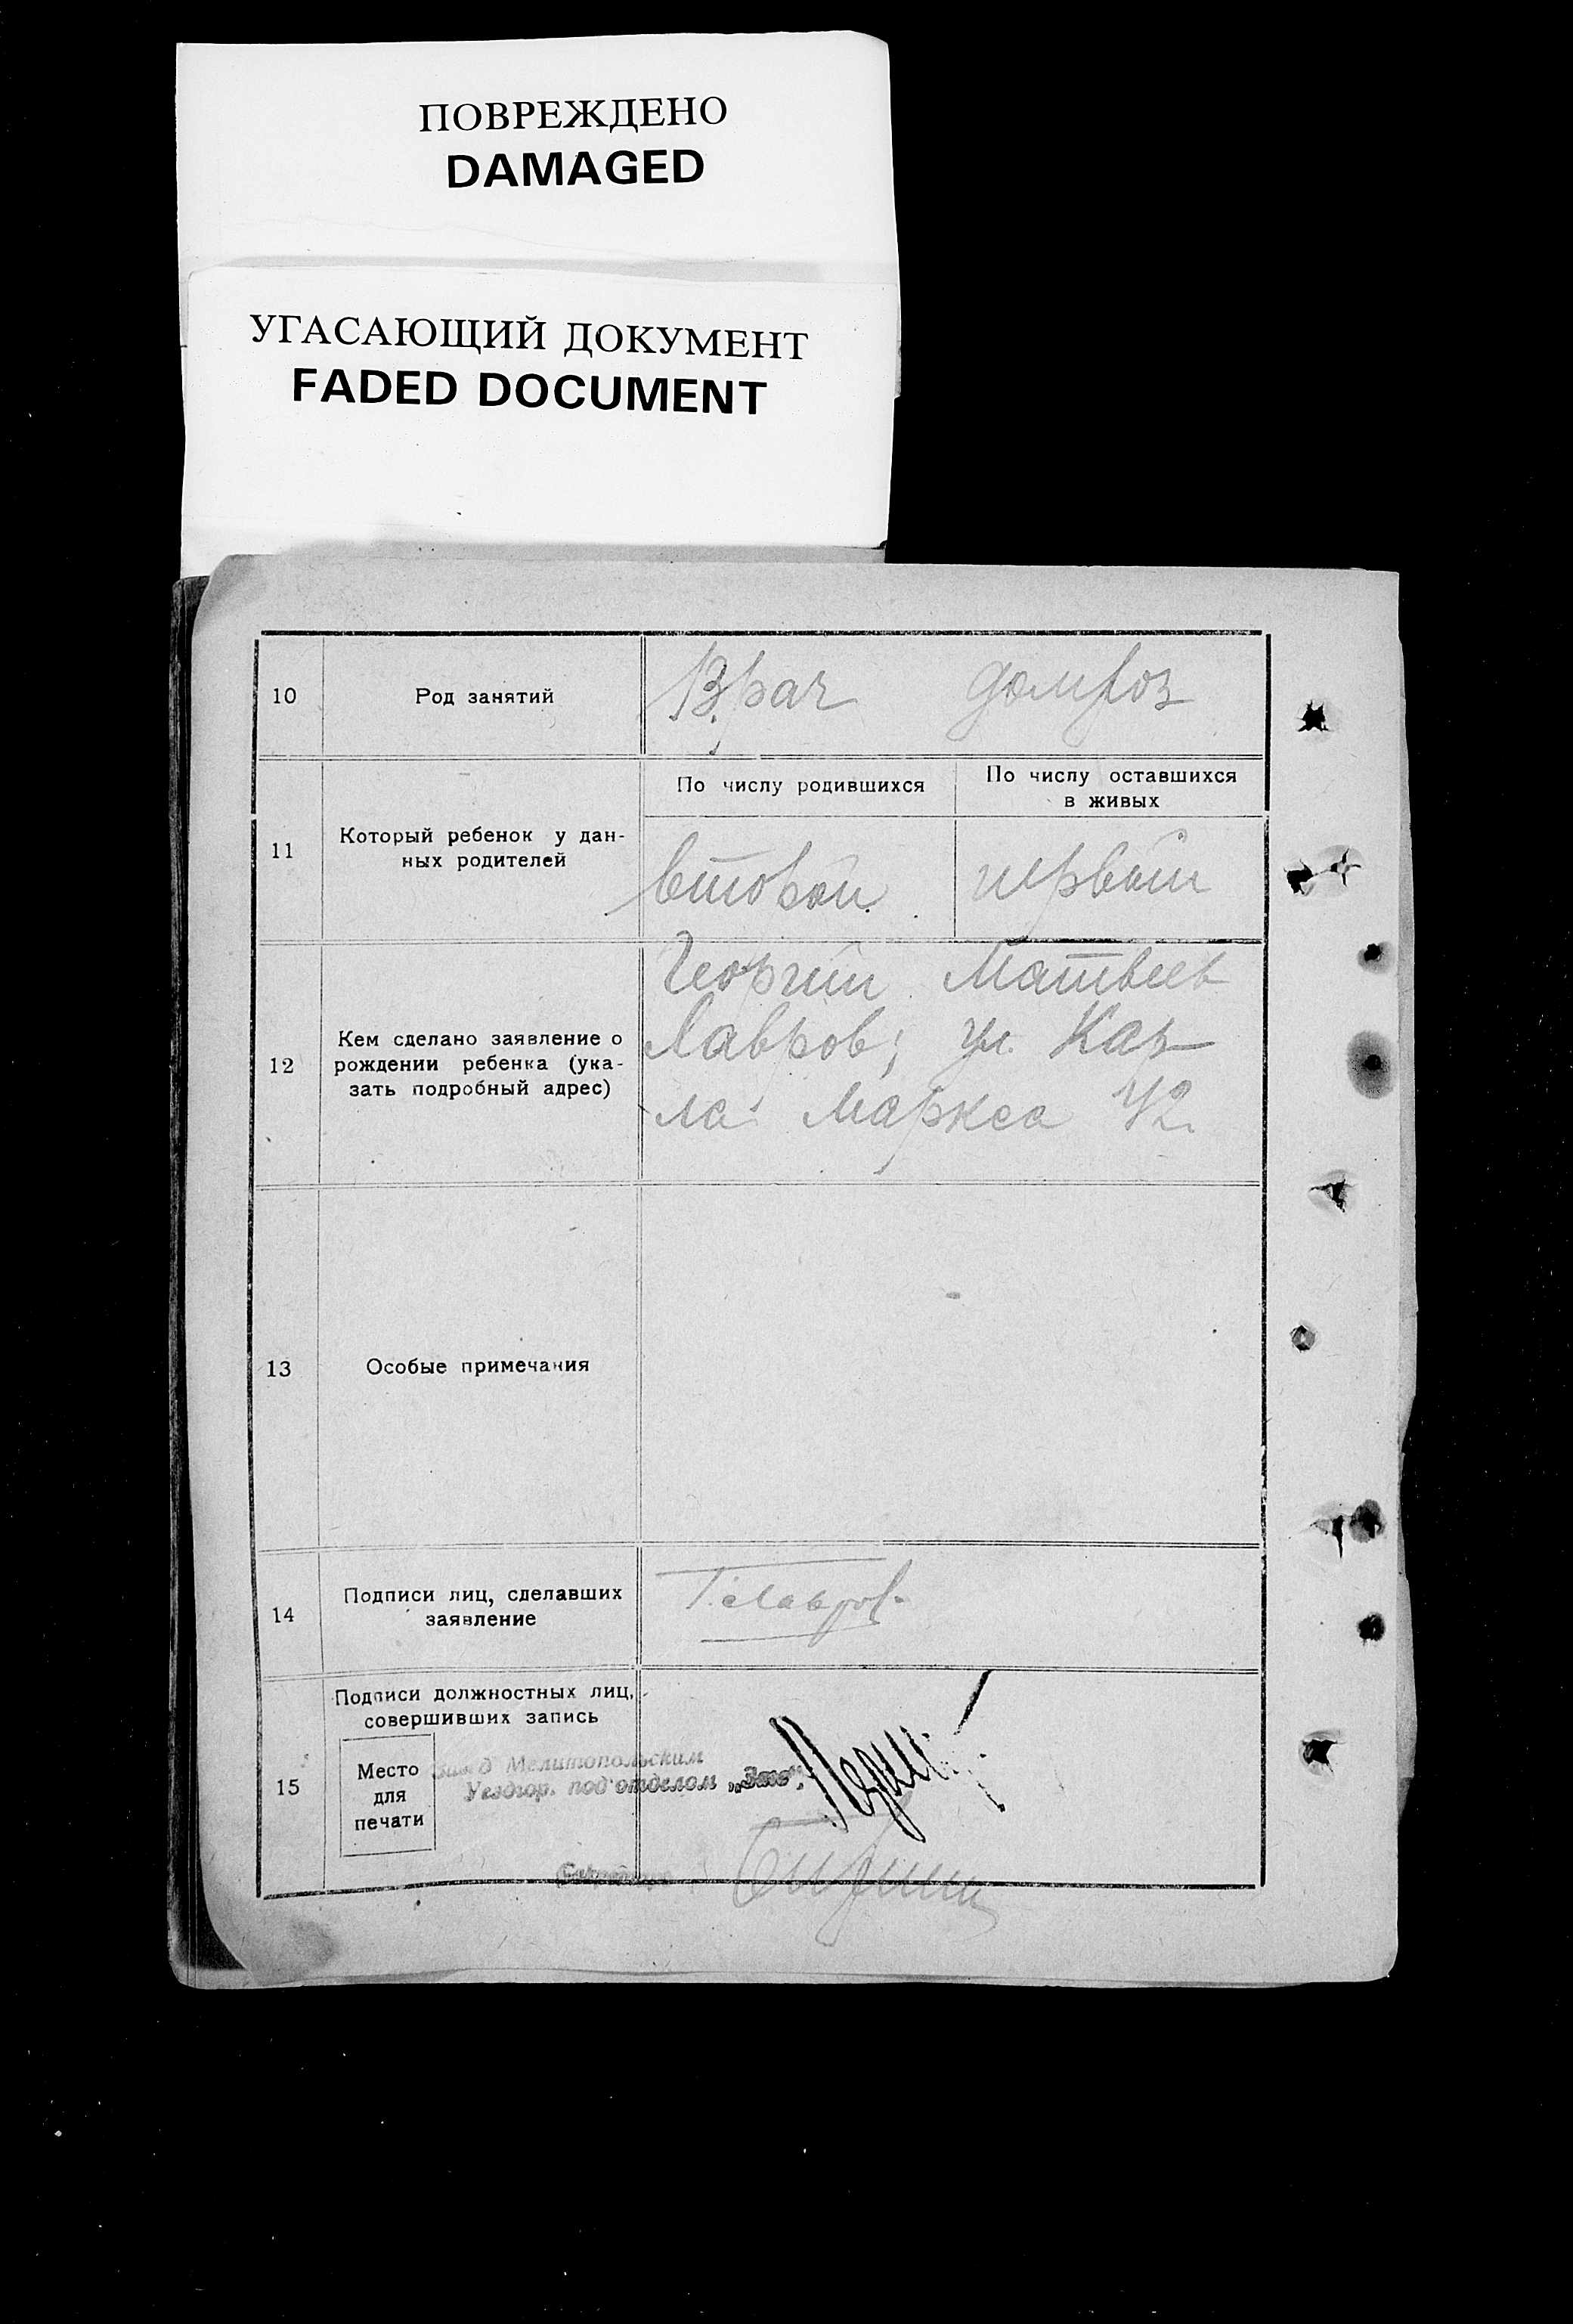 ПОВРЕЖДЕНО
DAMAGED
УГАСАЮЩИЙ ДОКУМЕНТ
FADED DOCUMENT
10
Род занятий
Врач домхоз
11
Который ребенок у дан-
ных родителей
По числу родившихся
По числу оставшихся
в живых
второй
первый
12
Кем сделано заявление о
рождении ребенка (ука-
зать подробный адрес)
Георгий Матвеев
Лавров; ул. Кар-
ла Маркса 42.
13
Особые примечания
14
Подписи лиц, сделавших
заявление
Г. Лавров
15
Подписи должностных лиц,
совершивших запись
Место
для
печати
Мелитопольским
Уездгор. подотделом „Загс“